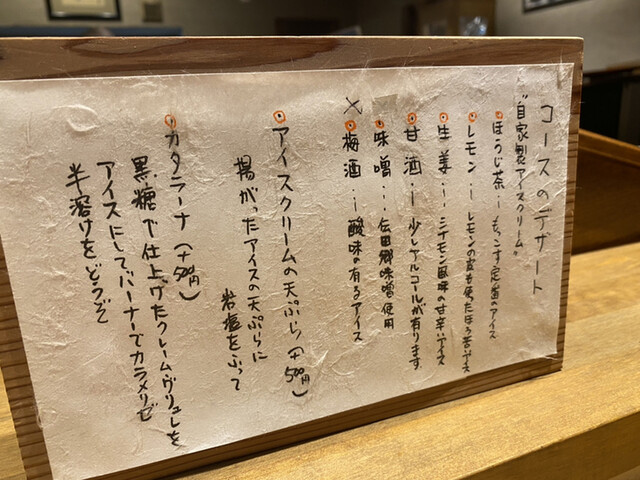 コースのデザート
"自家製アイスクリーム"
ほうじ茶…もっこす定番のアイス
レモン…レモンの皮も使ったほろ苦アイス
生姜…シナモン風味の甘辛いアイス
甘酒…少しアルコールが有ります
味噌…伝田郷味噌使用
×梅酒…酸味の有るアイス
アイスクリームの天ぷら(+500円)
揚がったアイスの天ぷらに
岩塩をふって
カタラーナ(+500円)
黒糖で仕上げたクレームヴリュレを
アイスにしてバーナーでカラメリゼ
半溶けをどうぞ